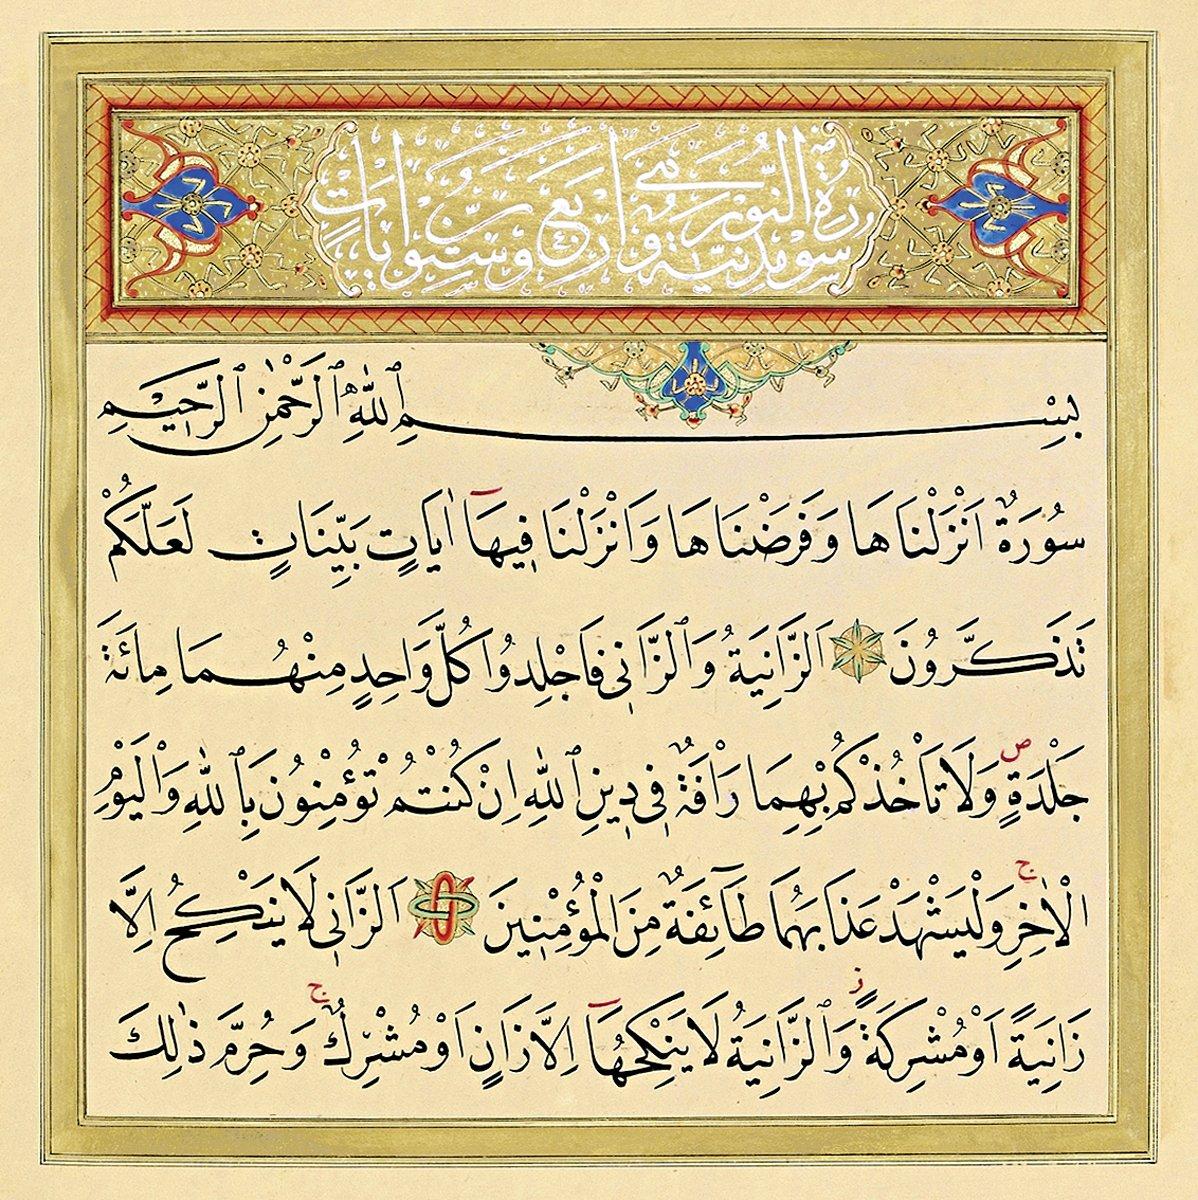 سورة النور مدنية وهي اربع وستون ايات
بِسْمِ ٱللّٰهِ ٱلرَّحْمٰنِ ٱلرَّحِيمِ
سُورَةٌ اَنْزَلْنَاهَا وَفَرَضْنَاهَا وَاَنْزَلْنَا فِيهَٓا اٰيَاتٍ بَيِّنَاتٍ لَعَلَّكُمْ
تَذَكَّرُونَ اَلزَّانِيَةُ وَٱلزَّانِى فَاجْلِدُوا كُلَّ وَاحِدٍ مِنْهُمَا مِائَةَ
جَلْدَةٍ ص وَلَا تَاْخُذْكُمْ بِهِمَا رَاْفَةٌ فِى دِينِ ٱللّٰهِ اِنْ كُنْتُمْ تُؤْمِنُونَ بِٱللّٰهِ وَالْيَوْمِ
الْاٰخِرِ ج وَلْيَشْهَدْ عَذَابَهُمَا طَٓائِفَةٌ مِنَ الْمُؤْمِنِينَ اَلزَّانِى لَا يَنْكِحُ اِلَّا
زَانِيَةً اَوْ مُشْرِكَةً ز وَٱلزَّانِيَةُ لَا يَنْكِحُهَٓا اِلَّا زَانٍ اَوْ مُشْرِكٌ ج وَحُرِّمَ ذٰلِكَ